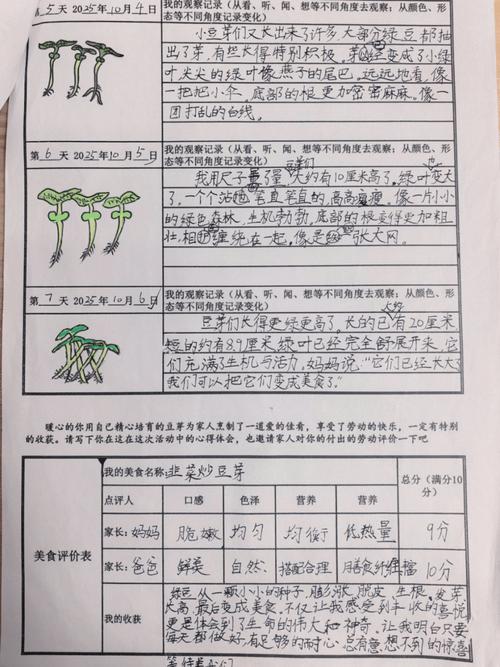 第5天 2025年10月4日
我的观察记录（从看、听、闻、想等不同角度去观察；从颜色、形态等不同角度记录变化）
小豆芽们又长出来了许多，大部分绿豆都抽
出了芽，有些长得特别积极，芽变成了小绿
叶，尖尖的绿叶像燕子的尾巴，远远地看，像
一把把小伞，底部的根更加密密麻麻。像一
团打乱的白线。
第6天 2025年10月5日
我的观察记录（从看、听、闻、想等不同角度去观察；从颜色、形态等不同角度记录变化）
我用尺子量了量，豆芽们大约有10厘米高了。绿叶变大
了，一个个站地笔直笔直的，高高瘦瘦。像一片小小
的绿色森林，生机勃勃，底部的根变得更加粗
壮，相互缠绕在一起，像是一张大网。
第7天 2025年10月6日
我的观察记录（从看、听、闻、想等不同角度去观察；从颜色、形态等不同角度记录变化）
豆芽们长得更绿更高了。长的已有大约20厘米
短的约有8.9厘米，绿叶已经完全舒展开来，它
们充满了生机与活力，妈妈说：“它们已经长大了
我们可以把它们变成美食了。”
暖心的你用自己精心培育的豆芽为家人烹制了一道爱的佳肴，享受了劳动的快乐，一定有特别
的收获。请写下你在这在这次活动中的心得体会，也邀请家人对你的付出的劳动评价一下吧
美食评价表
我的美食名称：韭菜炒豆芽
总分（满分10分）
点评人 口感 色泽 营养 营养
家长：妈妈 脆嫩 均匀 均衡 低热量 9分
家长：爸爸 鲜美 自然 搭配合理 膳食纤维 10分
我的收获
绿豆从一颗小小的种子，膨胀，脱皮，生根，发芽
长高，最后变成美食，不仅让我感受到丰收的喜悦
更是体会到了生命的伟大和神奇，让我明白只要
每天都做好，有足够的耐心，总有意想不到的惊喜